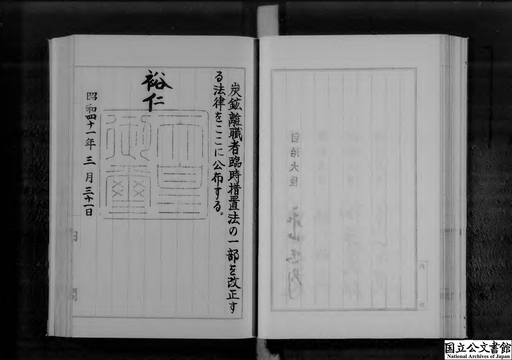 炭鉱離職者臨時措置法の一部を改正す
る法律をここに公布する。
裕仁
天皇
御璽
昭和四十一年三月三十一日
自治大臣
国立公文書館
National Archives of Japan